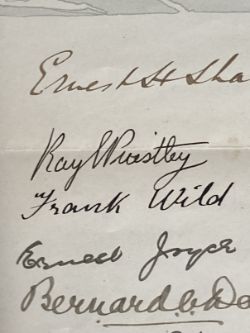 Ernest H Sha
Ray E Priestley
Frank Wild
Ernest Joyce
Bernard C De